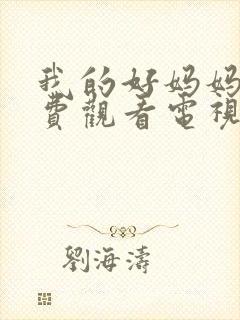 我的好妈妈
費觀看電視
劉海濤